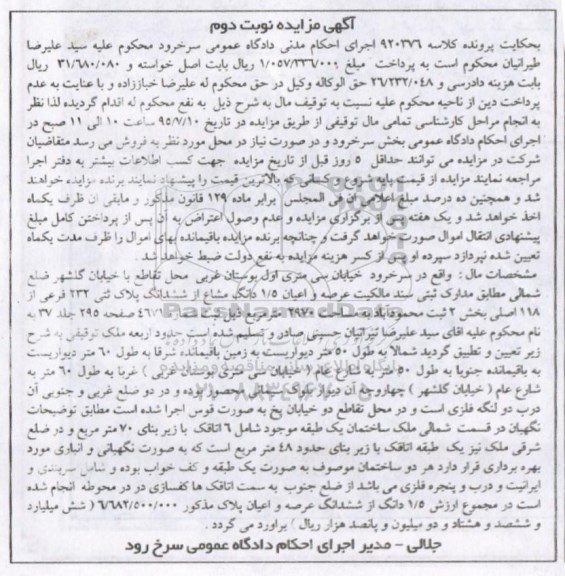 آگهی مزایده نوبت دوم
بحکایت پرونده کلاسه ۹۲۰۳۷۶ اجرای احکام مدنی دادگاه عمومی سرخرود محکوم علیه سید علیرضا
طبرانیان محکوم است به پرداخت مبلغ ۱/۰۵۷/۳۳۶/۰۰۰ ریال بابت اصل خواسته و ۳۱/۶۸۰/۰۸۰ ریال
بابت هزینه دادرسی و ۲۶/۲۳۲/۰۴۸ حق الوکاله وکیل در حق محکوم له علیرضا خباززاده و با عنایت به عدم
پرداخت دین از ناحیه محکوم علیه نسبت به توقیف مال به شرح ذیل به نفع محکوم له اقدام گردیده لذا نظر
به انجام مراحل کارشناسی تمامی مال توقیفی از طریق مزایده در تاریخ ۹۵/۷/۱۰ ساعت ۱۰ الی ۱۱ صبح در
اجرای احکام دادگاه عمومی بخش سرخرود و در صورت نیاز در محل مورد نظر به فروش می رسد متقاضیان
شرکت در مزایده می توانند حداقل ۵ روز قبل از تاریخ مزایده جهت کسب اطلاعات بیشتر به دفتر اجرا
مراجعه نمایند مزایده از قیمت پایه شروع و کسانی که بالاترین قیمت را پیشنهاد نمایند برنده مزایده خواهند
شد و همچنین ده درصد مبلغ اعلامی فی المجلس برابر ماده ۱۲۹ قانون مذکور و مابقی ان ظرف یکماه
اخذ خواهد شد و یک هفته پس از برگزاری مزایده و عدم وصول اعتراض به آن پس از پرداختن کامل مبلغ
پیشنهادی انتقال اموال صورت خواهد گرفت و چنانچه برنده مزایده باقیمانده بهای اموال را ظرف مدت یکماه
تعیین شده نپردازد سپرده او پس از کسر هزینه مزایده به نفع دولت ضبط خواهد شد.
مشخصات مال : واقع در سرخرود خیابان سی متری اول بوستان غربی محل تقاطع با خیابان گلشهر ضلع
شمالی مطابق مدارک ثبتی سند مالکیت عرصه و اعیان ۱/۵ دانگ مشاع از ششدانگ پلاک ثبتی ۲۳۲ فرعی از
۱۱۸ اصلی بخش ۲ ثبت محمودآباد به مساحت ۲۹۷۰ مترمربع ذیل ثبت صفحه ۲۹۵ جلد ۳۷ به
نام محکوم علیه اقای سید علیرضا تبرانیان حسینی صادر و تسلیم شده است حدود اربعه ملک توقیفی به شرح
زیر تعیین و تطبیق گردید شمالا به طول ۵۰ متر دیواریست به زمین باقیمانده شرقا به طول ۶۰ متر دیواریست
به باقیمانده جنوبا به طول ۵۰ متر به شارع عام ( خیابان سی متری بوستان غربی ) غربا به طول ۶۰ متر به
شارع عام ( خیابان گلشهر ) چهاروجه آن دیوار بلوک سیمانی محصور بوده و در دو ضلع غربی و جنوبی آن
درب دو لنگه فلزی است و در محل تقاطع دو خیابان پخ به صورت قوس اجرا شده است مطابق توضیحات
نگهبان در قسمت شمالی ملک ساختمان یک طبقه موجود شامل ۶ اتاقک با زیر بنای ۷۰ متر مربع و در ضلع
شرقی ملک نیز یک طبقه اتاقک با زیر بنای حدود ۴۸ متر مربع است که به صورت نگهبانی و انباری مورد
بهره برداری قرار دارد هر دو ساختمان موصوف به صورت یک طبقه و کف خواب بوده و شامل سربندی و
ایرانیت و درب و پنجره فلزی می باشد از ضلع جنوب به سمت اتاقک ها کفسازی در در محوطه انجام شده
است در مجموع ارزش ۱/۵ دانگ از ششدانگ عرصه و اعیان پلاک مذکور ۶/۶۸۲/۵۰۰/۰۰۰ ( شش میلیارد
و ششصد و هشتاد و دو میلیون و پانصد هزار ریال ) براورد می گردد .
جلالی - مدیر اجرای احکام دادگاه عمومی سرخ رود